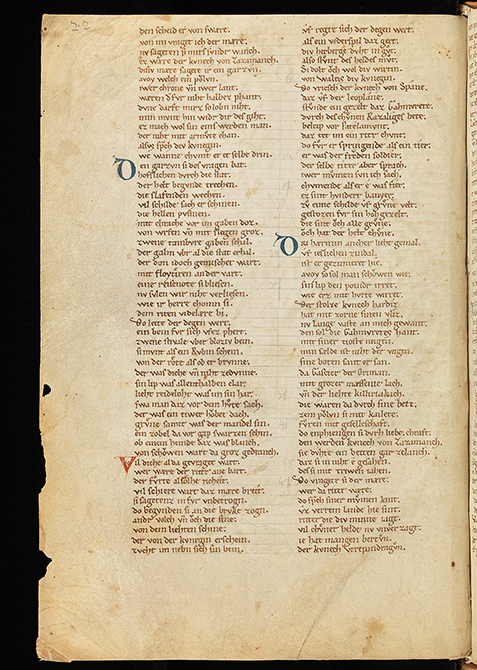 den scheid er von sware.
von im vraget ich der mære.
ny sageten si mirs synder wanch.
ez wære der kynech von Zazamanch.
disiv mære sagete ir ein garzyn.
avoy welch ein polvn.
iwer chrone vn iwer lant.
waren da fvr niht halbez phant.
dvne darft mirz so lobn niht.
min mvnt hin wider dir des giht.
ez mach wol sin eins werden man.
der niht mit armvte chan.
alsvs sprach div kvnegin.
we wanne chvmt et er selbe drin.
Den garzvn si des vragen bat.
hofslichen dvrch die stat.
der helt begvnde trechen.
die slafenden wechen.
vil schilde sach er schinen.
die hellen pvsinen.
mit chrache vor im gaben doz.
von wrfen vn mit slegen groz.
zwene tambvre gaben schal.
der galm vbr al die stat erhal.
der don idoch gemischet wart.
mit floytiren an der vart.
eine reisenote si bliesen.
nv svlen wir niht verliesen.
wie ir herre chomn si.
dem riten videlære bi.
Do leite der degen wert.
ein bein fvr sich vfz phert.
zwene stivale vber bloziv bein.
sin mvnt als ein Rvbin schein.
von der rote als ob er brvnne.
der was diche vn niht zedvnne.
sin lip was allenthalben clar.
lieht reideloht was im sin har.
swa man daz vor dem hvte sach.
der was ein tiwer hobet dach.
grvene samit was der mandel sin.
ein zobel da vor gap swarzen schin.
ob einem hemde daz was blanch.
von schowen wart da groz gedranch.
Vil diche al da gevraget wart.
wer wære der riter ane bart.
der fvrte alsolhe richeit.
vil schiere wart daz mære breit.
si sagetenz in fvr vnbetrogn.
do begvnden si an die brvke zogn.
ander volch vn och die sine.
von dem liehten schine.
der von der kvnegin erschein.
zvcht im nebn sich sin bein.
vf regte sich der degen wert.
als ein vederspil daz gert.
div herberge dvht in gvt.
also stvnt des heldes mvt.
Si dolt och wol div wirtin.
von Waleis div kvnegin.
Do vriesch der kynech von Spane.
daz vf der leoplane.
stvnde ein gezelt daz Gahmvrete.
dvrch des chvnen Razaliges bete.
beleip vor patelamvnt.
daz tet im ein riter chvnt.
do fvr er springende als ein tier.
er was der frevden soldier.
der selbe riter aber sprach.
iwer mvmen svn ich sach.
chvmende als er e was fier.
ez sint hvndert banyer.
zv eime schilde vf grvne velt.
gestozen fvr sin hohgezelt.
die sint och alle grvne.
och hat der helt chvne.
Drv harmin ancher lieht gemal.
vf ieslichen zindal.
ist er gezimieret hie.
avoy so sol man schowen wie.
sin lip den poinder irret.
wie erz mit hvrte wirret.
Der stolze kvnech hardiz.
hat mit zorne sinen vliz.
nv lange vaste an mich gewant.
den sol div Gahmvretes hant.
mit siner tioste neigen.
min selde ist niht der veigen.
sine boten sant er san.
da Gascier der orman.
mit grozer massenie lach.
vn der liehte killirtakach.
die waren da dvrch sine bete.
zem polvn si mit kailete.
fvren mit gesellescheft.
do enphiengen si dvrch liebe chraft.
den werden kvnech von Zazamanch.
sie dvhte ein beiten gar zelanch.
daz si in niht e gesahen.
des si mit triwen iahen.
Do vraget er si der mære.
wer da riter wære.
do sprach siner mvmen kint.
vz verrem lande hie sint.
riter die div minne iagt.
vil chvner helde nv vnverzagt.
ie hat mangen bertvn.
der kynech Vtrepandragvn.